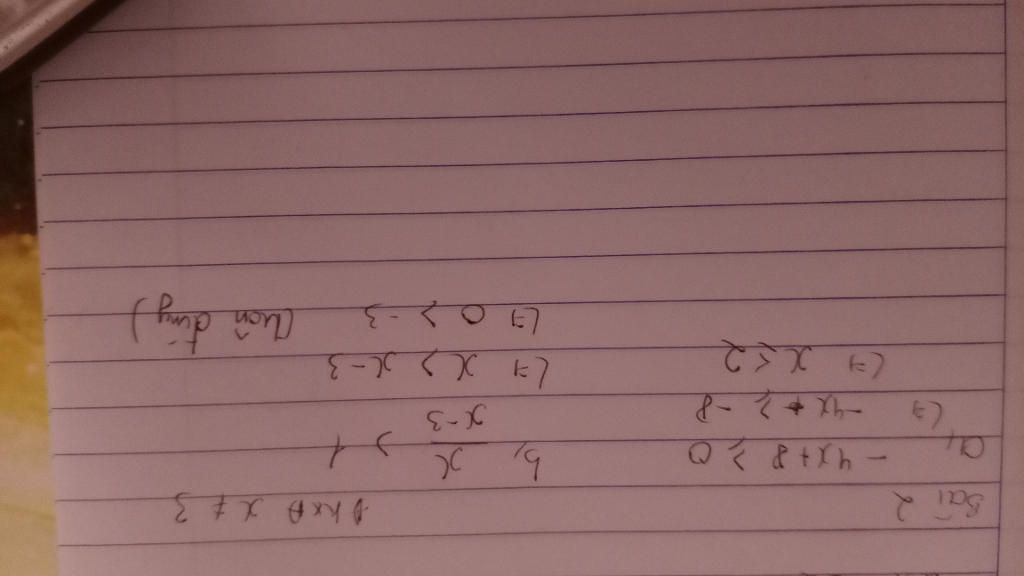 Bài 2
a, -4x+8 ≥ 0
<=> -4x ≥ -8
<=> x ≤ 2
ĐKXĐ x ≠ 3
b, x/(x-3) > 1
<=> x > x-3
<=> 0 > -3 (luôn đúng)